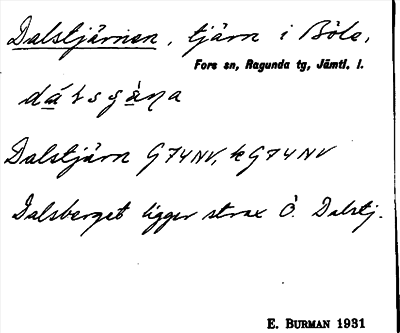 Dalstjärnen, tjärn i Böle,
Fors sn, Ragunda tg, Jämtl. l.
Dalstjärn G74NV, k G74NV
Dalsberget ligger strax Ö. Dalstj.
E. BURMAN 1931